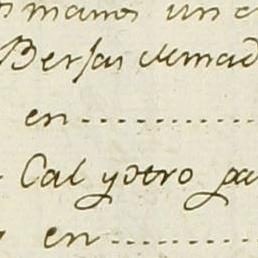 manos un
Bersas demad
en..............
Cal y otro pa
en............